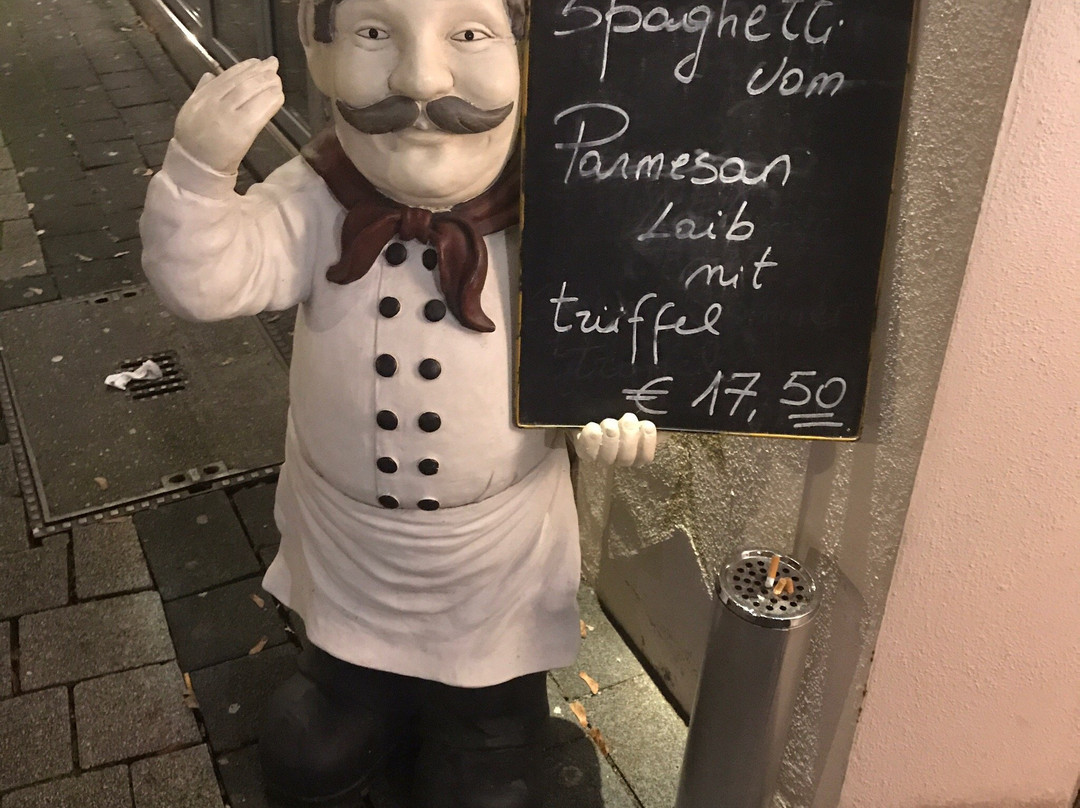 Spaghetti
vom
Parmesan
Laib
mit
trüffel
€ 17,50